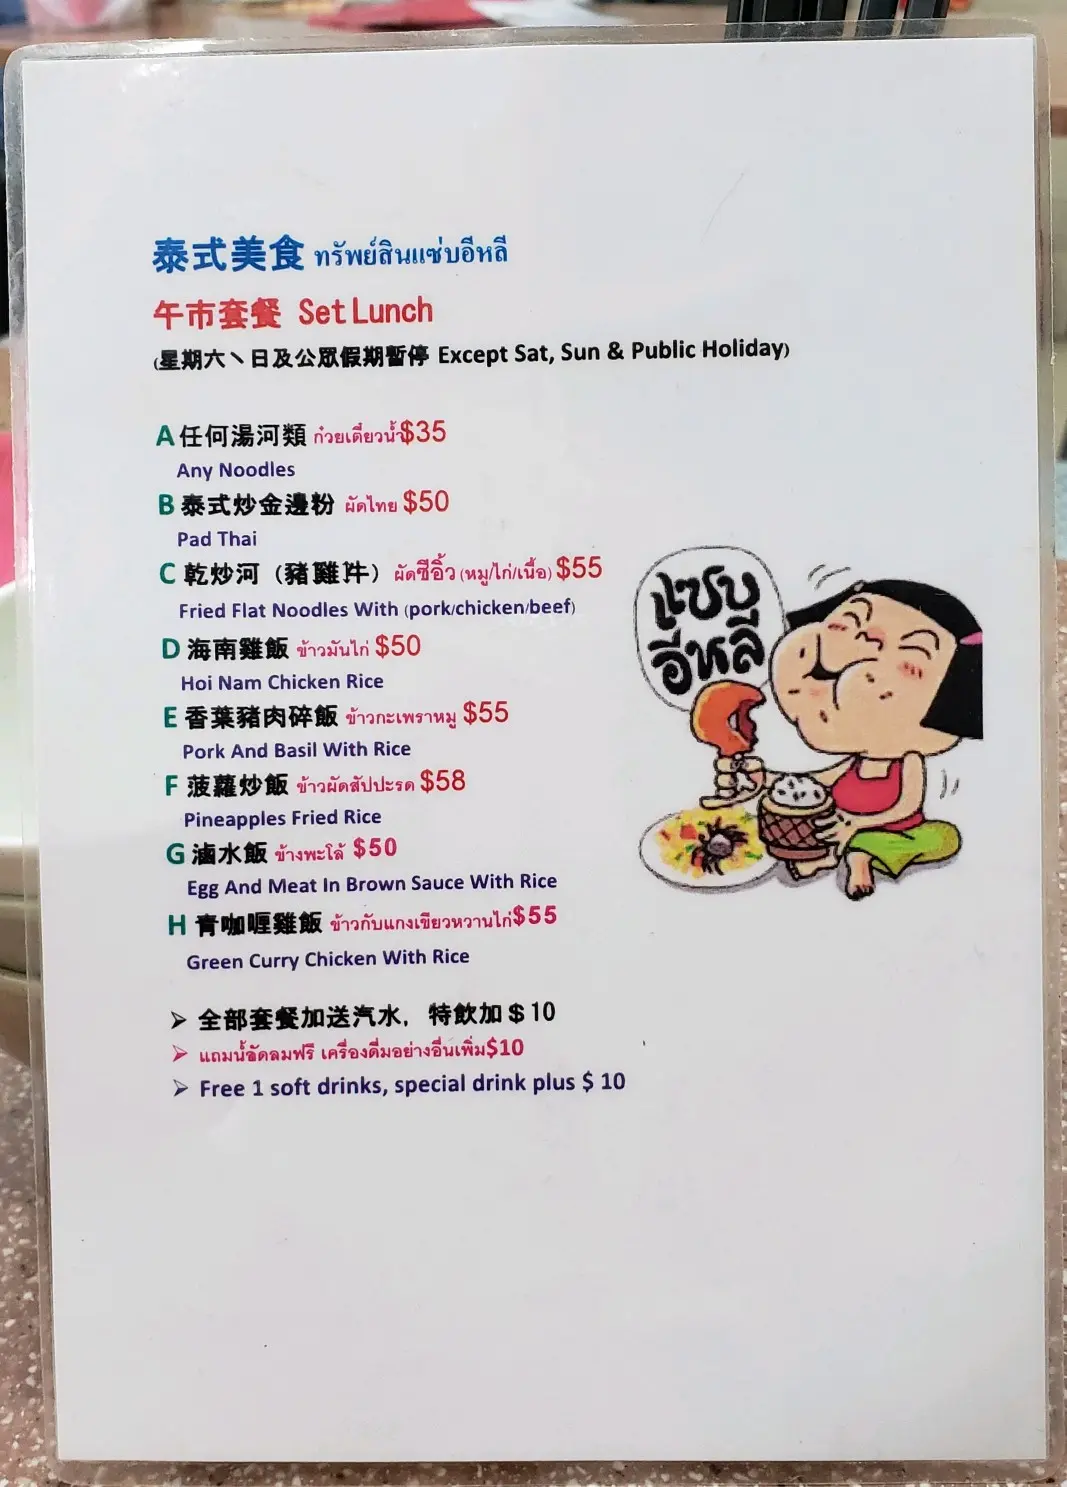 泰式美食 ทรัพย์สินแซ่บอีหลี
午市套餐 Set Lunch
(星期六、日及公眾假期暫停 Except Sat, Sun & Public Holiday)
A 任何湯河類 ก๋วยเตี๋ยวน้ำ$35
Any Noodles
B 泰式炒金邊粉 ผัดไทย $50
Pad Thai
C 乾炒河（豬雞牛）ผัดซีอิ้ว (หมู/ไก่/เนื้อ) $55
Fried Flat Noodles With (pork/chicken/beef)
แซบ
อีหลี
D 海南雞飯 ข้าวมันไก่ $50
Hoi Nam Chicken Rice
E 香葉豬肉碎飯 ข้าวกะเพราหมู $55
Pork And Basil With Rice
F 菠蘿炒飯 ข้าวผัดสัปปะรด $58
Pineapples Fried Rice
G 滷水飯 ข้างพะโล้ $50
Egg And Meat In Brown Sauce With Rice
H 青咖喱雞飯 ข้าวกับแกงเขียวหวานไก่$55
Green Curry Chicken With Rice
➢ 全部套餐加送汽水，特飲加＄10
➢ แถมน้ำอัดลมฟรี เครื่องดื่มอย่างอื่นเพิ่ม$10
➢ Free 1 soft drinks, special drink plus $ 10